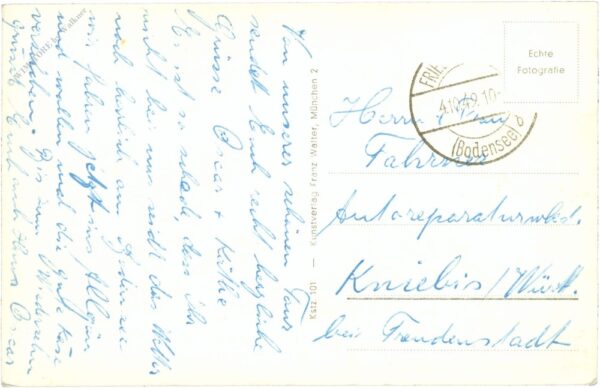 Von unserer schönen Tour
sendet Euch recht herzliche
Grüsse Oscar + Käthe
Es ist so schade, dass Ihr
nicht bei uns seid, das Wetter
noch herrlich am Bodensee
wir fahren jetzt ins Allgäu
und wollen und die gute Käse
versuchen. Bis zum Wiedersehn
grüsst Euch auch Oscar
Kstz 101 — Kunstverlag Franz Walter, München 2
Echte
Fotografie
FRIE
4.10.49.10-
(Bodensee) b
Herrn + Frau
Fahrner
Autoreparaturwkst.
Kniebis/Württ.
bei Freudenstadt